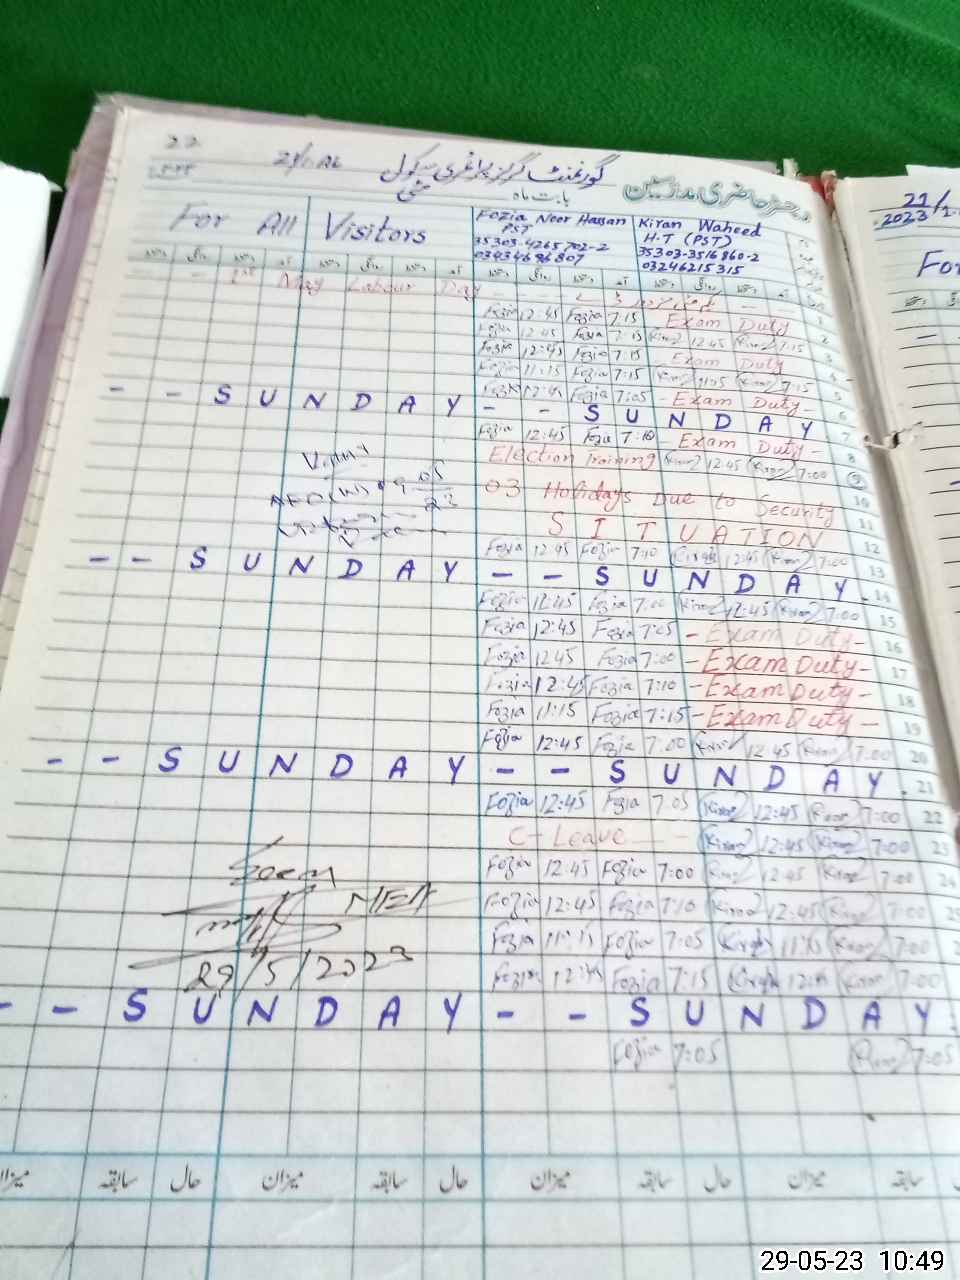 22
گورنمنٹ گرلز پرائمری سکول
رجسٹر حاضری مدرسین
بابت ماہ مئی
For All Visitors
Fozia Noor Hassan
PST
35303-4265702-2
03434696807
Kiran Waheed
H.T (PST)
35303-3516860-2
03246215315
21/
2023
For
- - 1st May Labour Day - - - - 1
Fozia 12:45 Fozia 7:15 Exam Duty 2
Fozia 12:45 Fozia 7:15 Kiran 12:45 Kiran 7:15 3
Fozia 12:45 Fozia 7:15 - Exam Duty 4
Fozia 11:15 Fozia 7:15 Kiran 11:05 Kiran 7:15 5
Fozia 12:45 Fozia 7:05 - Exam Duty - 6
- - S U N D A Y - - S U N D A Y 7
Fozia 12:45 Fozia 7:10 - Exam Duty - 8
Election Training Kiran 12:45 Kiran 7:00 9
Visited
03 Holidays Due to Security 10
S I T U A T I O N 11
Fozia 12:45 Fozia 7:10 Kiran 12:45 Kiran 7:00 13
- - S U N D A Y - - S U N D A Y 14
Fozia 12:45 Fozia 7:00 Kiran 12:45 Kiran 7:00 15
Fozia 12:45 Fozia 7:05 - Exam Duty - 16
Fozia 12:45 Fozia 7:00 - Exam Duty - 17
Fozia 12:45 Fozia 7:10 - Exam Duty - 18
Fozia 11:15 Fozia 7:15 - Exam Duty - 19
Fozia 12:45 Fozia 7:00 Kiran 12:45 Kiran 7:00 20
- - S U N D A Y - - S U N D A Y 21
Fozia 12:45 Fozia 7:05 Kiran 12:45 Kiran 7:00 22
C-Leave Kiran 12:45 Kiran 7:00 23
Fozia 12:45 Fozia 7:00 Kiran 12:45 Kiran 7:00 24
Fozia 12:45 Fozia 7:10 Kiran 12:45 Kiran 7:00
Fozia 11:15 Fozia 7:05 Kiran 11:15 Kiran 7:00
Fozia 12:45 Fozia 7:15 Kiran 12:45 Kiran 7:00
Seen
MEA
29/5/2023
- - S U N D A Y - - S U N D A Y
Fozia 7:05 Kiran 7:05
میزان سابقہ حال میزان سابقہ حال میزان سابقہ حال میزان سابقہ
29-05-23 10:49